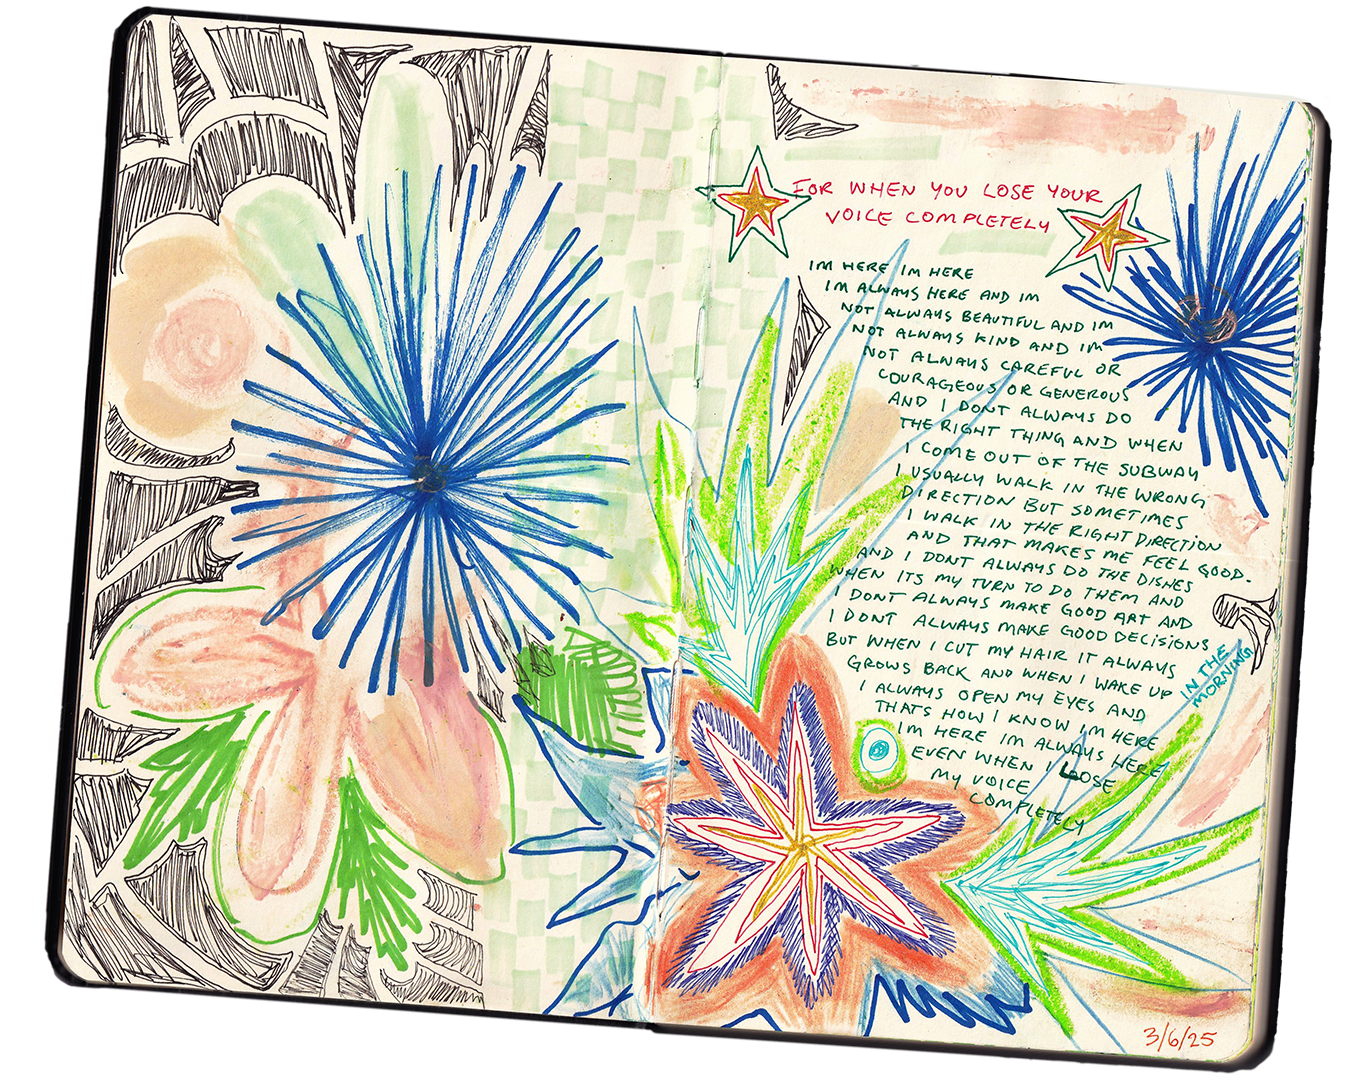 FOR WHEN YOU LOSE YOUR
VOICE COMPLETELY
IM HERE IM HERE
IM ALWAYS HERE AND IM
NOT ALWAYS BEAUTIFUL AND IM
NOT ALWAYS KIND AND IM
NOT ALWAYS CAREFUL OR
COURAGEOUS OR GENEROUS
AND I DONT ALWAYS DO
THE RIGHT THING AND WHEN
I COME OUT OF THE SUBWAY
I USUALLY WALK IN THE WRONG
DIRECTION BUT SOMETIMES
I WALK IN THE RIGHT DIRECTION
AND THAT MAKES ME FEEL GOOD.
AND I DONT ALWAYS DO THE DISHES
WHEN ITS MY TURN TO DO THEM AND
I DONT ALWAYS MAKE GOOD ART AND
I DONT ALWAYS MAKE GOOD DECISIONS
BUT WHEN I CUT MY HAIR IT ALWAYS
GROWS BACK AND WHEN I WAKE UP
IN THE
MORNING
I ALWAYS OPEN MY EYES AND
THATS HOW I KNOW IM HERE
IM HERE IM ALWAYS HERE
EVEN WHEN I LOSE
MY VOICE
COMPLETELY
3/6/25